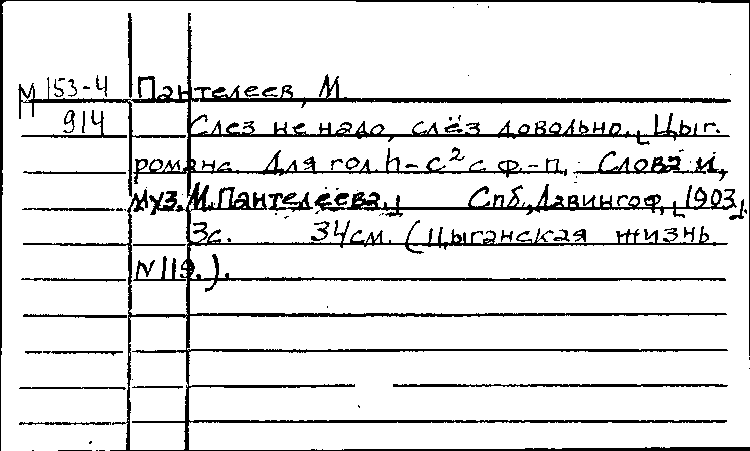 М 153-4 Пантелеев, М.
914 Слез не надо, слёз довольно. [Цыг.
романс. Для гол. h-c² с ф.-п. Слова и
муз. М. Пантелеева.] Спб., Давингоф, [1903].
3с. 34см. (Цыганская жизнь.
N 119.).